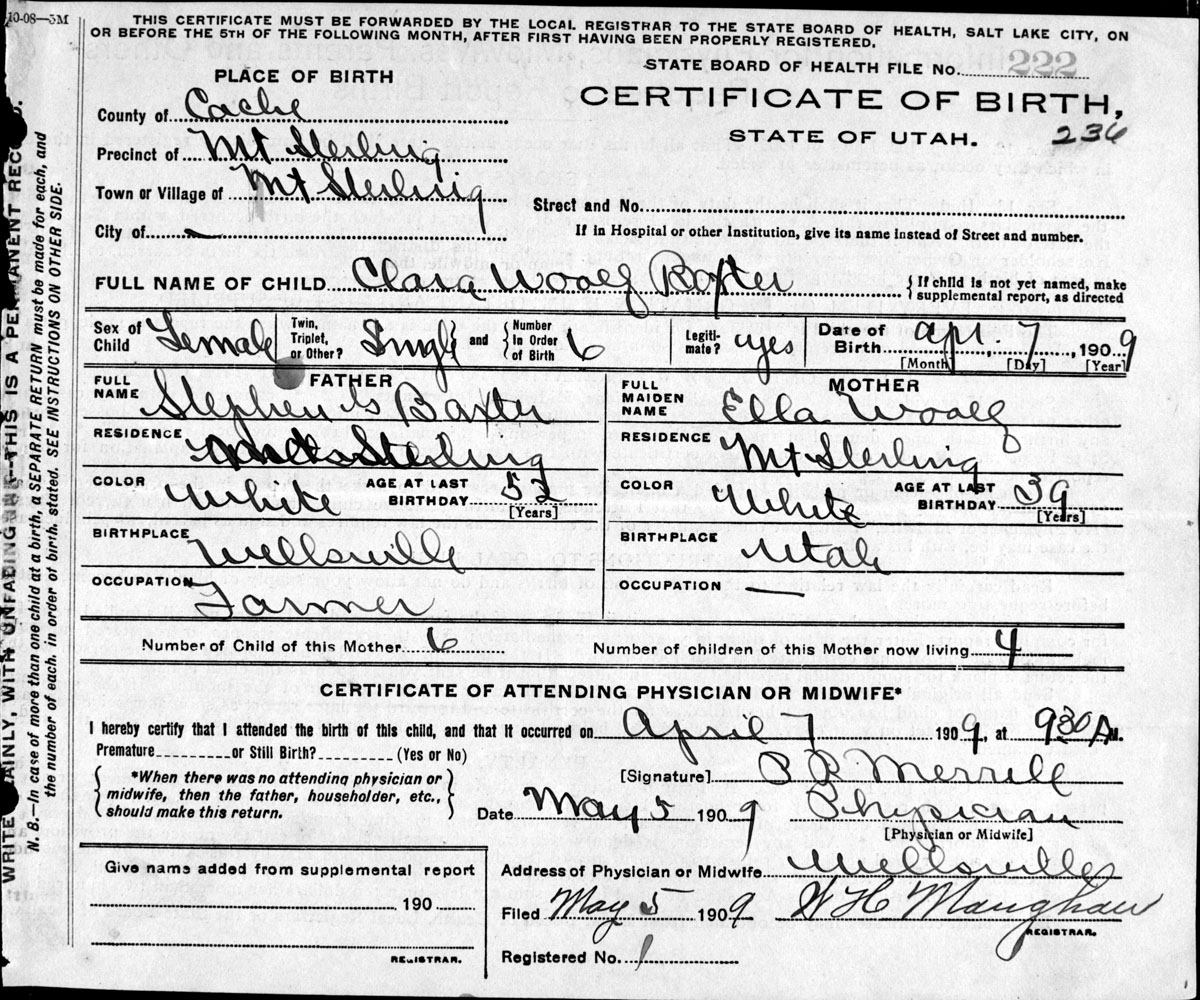 10-08—3M
THIS CERTIFICATE MUST BE FORWARDED BY THE LOCAL REGISTRAR TO THE STATE BOARD OF HEALTH, SALT LAKE CITY, ON
OR BEFORE THE 5TH OF THE FOLLOWING MONTH, AFTER FIRST HAVING BEEN PROPERLY REGISTERED.
STATE BOARD OF HEALTH FILE No. 222
PLACE OF BIRTH
CERTIFICATE OF BIRTH,
STATE OF UTAH. 236
County of Cache
Precinct of Mt Sterling
Town or Village of Mt Sterling
Street and No.
City of —
If in Hospital or other Institution, give its name instead of Street and number.
FULL NAME OF CHILD Clara Woolf Baxter { If child is not yet named, make supplemental report, as directed
Sex of Child Female Twin, Triplet, or Other? Single } and { Number In Order of Birth 6 Legiti-mate? yes Date of Birth Apr. 7, 1909
[Month] [Day] [Year]
FATHER
FULL NAME Stephen G Baxter
RESIDENCE Sterling
COLOR White AGE AT LAST BIRTHDAY 52
[Years]
BIRTHPLACE Wellsville
OCCUPATION Farmer
MOTHER
FULL MAIDEN NAME Ella Woolf
RESIDENCE Mt Sterling
COLOR White AGE AT LAST BIRTHDAY 39
[Years]
BIRTHPLACE Utah
OCCUPATION —
Number of Child of this Mother 6 Number of children of this Mother now living 4
CERTIFICATE OF ATTENDING PHYSICIAN OR MIDWIFE*
I hereby certify that I attended the birth of this child, and that it occurred on April 7 1909, at 930 A M.
Premature or Still Birth? (Yes or No)
{ *When there was no attending physician or midwife, then the father, householder, etc., should make this return. }
[Signature] Merrill
Date May 5 1909 Physician
[Physician or Midwife]
Address of Physician or Midwife Wellsville
Filed May 5 1909 W H Maughan
REGISTRAR.
Registered No. 1
Give name added from supplemental report
190
REGISTRAR.
WRITE PLAINLY, WITH UNFADING INK—THIS IS A PERMANENT RECORD.
N. B.—In case of more than one child at a birth, a SEPARATE RETURN must be made for each, and
the number of each, in order of birth, stated. SEE INSTRUCTIONS ON OTHER SIDE.